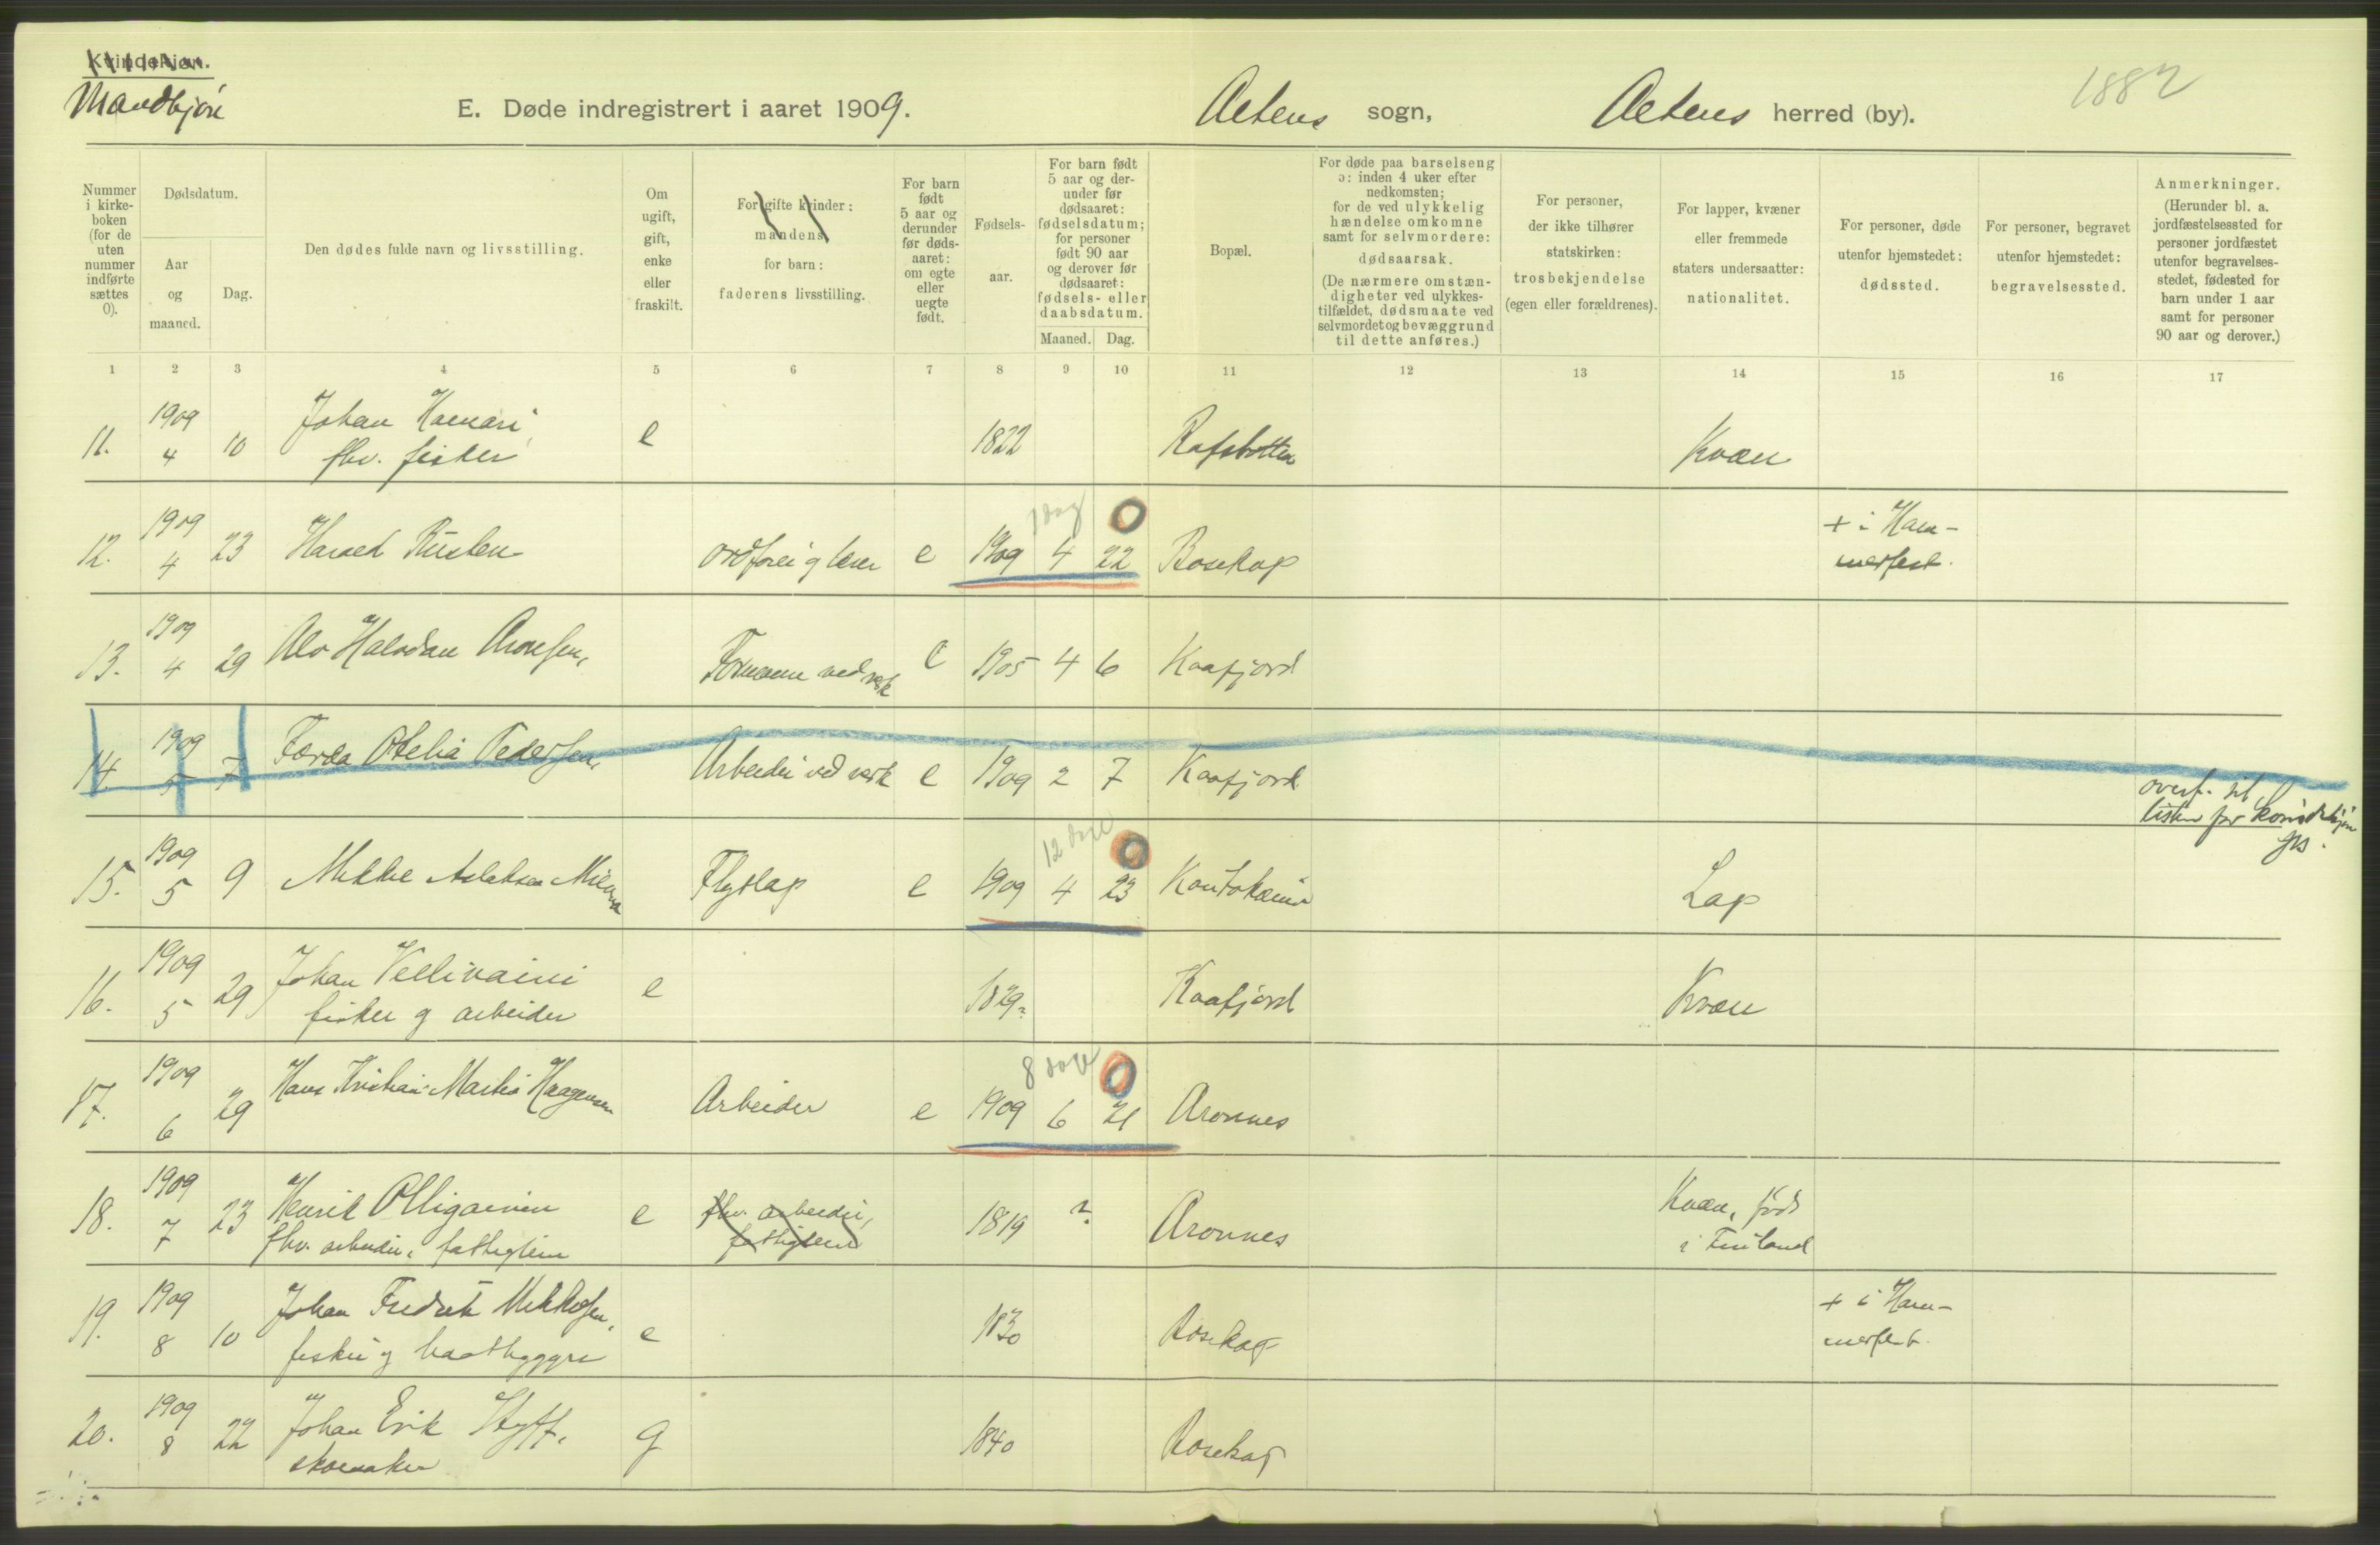 Kvindekjøn.
Mandkjøn
E. Døde indregistrert i aaret 1909.
Altens sogn,
Altens herred (by).
1882
Nummer i kirke-boken (for de uten nummer indførte sættes 0).
Dødsdatum.
Aar og maaned.
Dag.
Den dødes fulde navn og livsstilling.
Om ugift, gift, enke eller fraskilt.
For gifte kvinder: mandens, for barn: faderens livsstilling.
For barn født 5 aar og derunder før døds-aaret: om egte eller uegte født.
Fødsels-aar.
For barn født 5 aar og der-under før dødsaaret: fødselsdatum; for personer født 90 aar og derover før dødsaaret: fødsels- eller daabsdatum.
Maaned. Dag.
Bopæl.
For døde paa barselseng ɔ: inden 4 uker efter nedkomsten; for de ved ulykkelig hændelse omkomne samt for selvmordere: dødsaarsak.
(De nærmere omstæn-digheter ved ulykkes-tilfældet, dødsmaate ved selvmordet og bevæggrund til dette anføres.)
For personer, der ikke tilhører statskirken: trosbekjendelse (egen eller forældrenes).
For lapper, kvæner eller fremmede staters undersaatter: nationalitet.
For personer, døde utenfor hjemstedet: dødssted.
For personer, begravet utenfor hjemstedet: begravelsessted.
Anmerkninger. (Herunder bl. a. jordfæstelsessted for personer jordfæstet utenfor begravelses-stedet, fødested for barn under 1 aar samt for personer 90 aar og derover.)
1 2 3 4 5 6 7 8 9 10 11 12 13 14 15 16 17
11. 1909 4 10 Johan
fhv. fisker e 1822 Rafsbotten Kvæn
1 dag 0
12. 1909 4 23 Harald e 1909 4 22 Bosekop + i Ham-
merfest.
13. 1909 4 29 Alv Halvdan Aronsen, Formann ved verk e 1905 4 6 Kaafjord
14. 1909 5 7 Otelia Pedersen, Arbeider ved verk e 1909 2 7 Kaafjord overf. til
listen for kvindekjøn
12 dage 0
15. 1909 5 9 Mikkel Aslaksen Flytlap e 1909 4 23 Kautokeino Lap
16. 1909 5 29 Johan Vellivaini
fisker og arbeider e 1829 Kaafjord Kvæn
8 dage 0
17. 1909 6 29 Hans Kristian Martin Haagensen Arbeider e 1909 6 21 Aronnes
18. 1909 7 23 Henrik
fhv. arbeider, fattiglem e fhv. arbeider,
fattiglem 1819 ? Aronnes Kvæn, født
i Finland
19. 1909 8 10 Johan Fredrik Mikkelsen,
fisker og baatbygger e 1830 Bosekop + i Ham-
merfest.
20. 1909 8 22 Johan Erik
skomaker g 1840 Bosekop